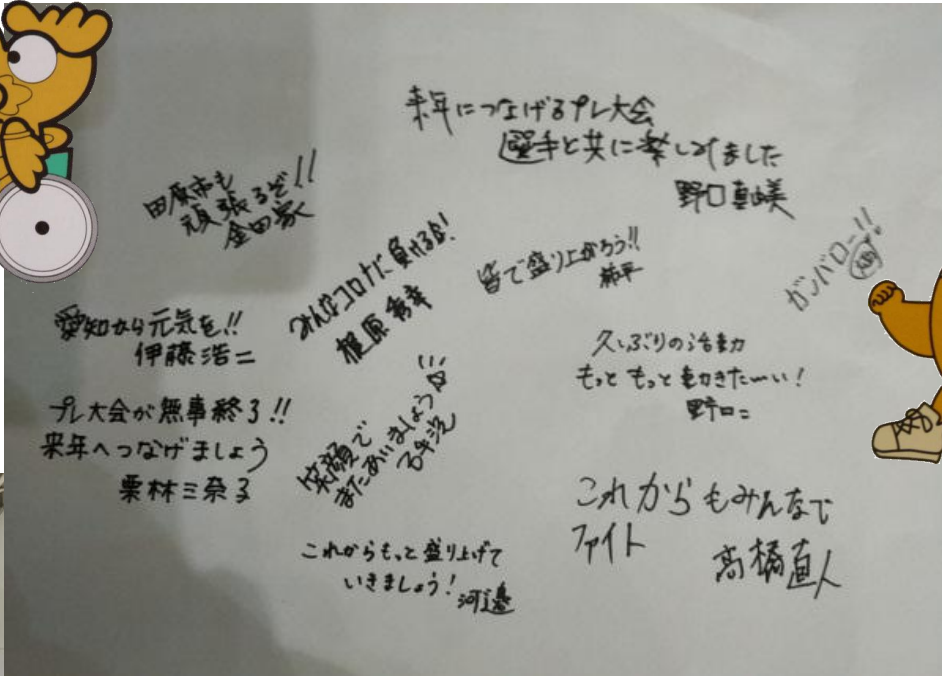 来年につなげるプレ大会
選手と共に楽しみました
野口真由美
田原市も
頑張るぞ!!
金田家
みんなコロナに負けるな!
榎原秀幸
皆で盛り上がろう!!
ガンバロー!!
愛知から元気を!!
伊藤浩二
久しぶりの活動
もっともっと動きた〜い!
野口二
プレ大会が無事終了!!
来年へつなげましょう
栗林三奈子
笑顔で
またあいましょう☆
これからもみんなで
ファイト
高橋直人
これからもっと盛り上げて
いきましょう!
河邊